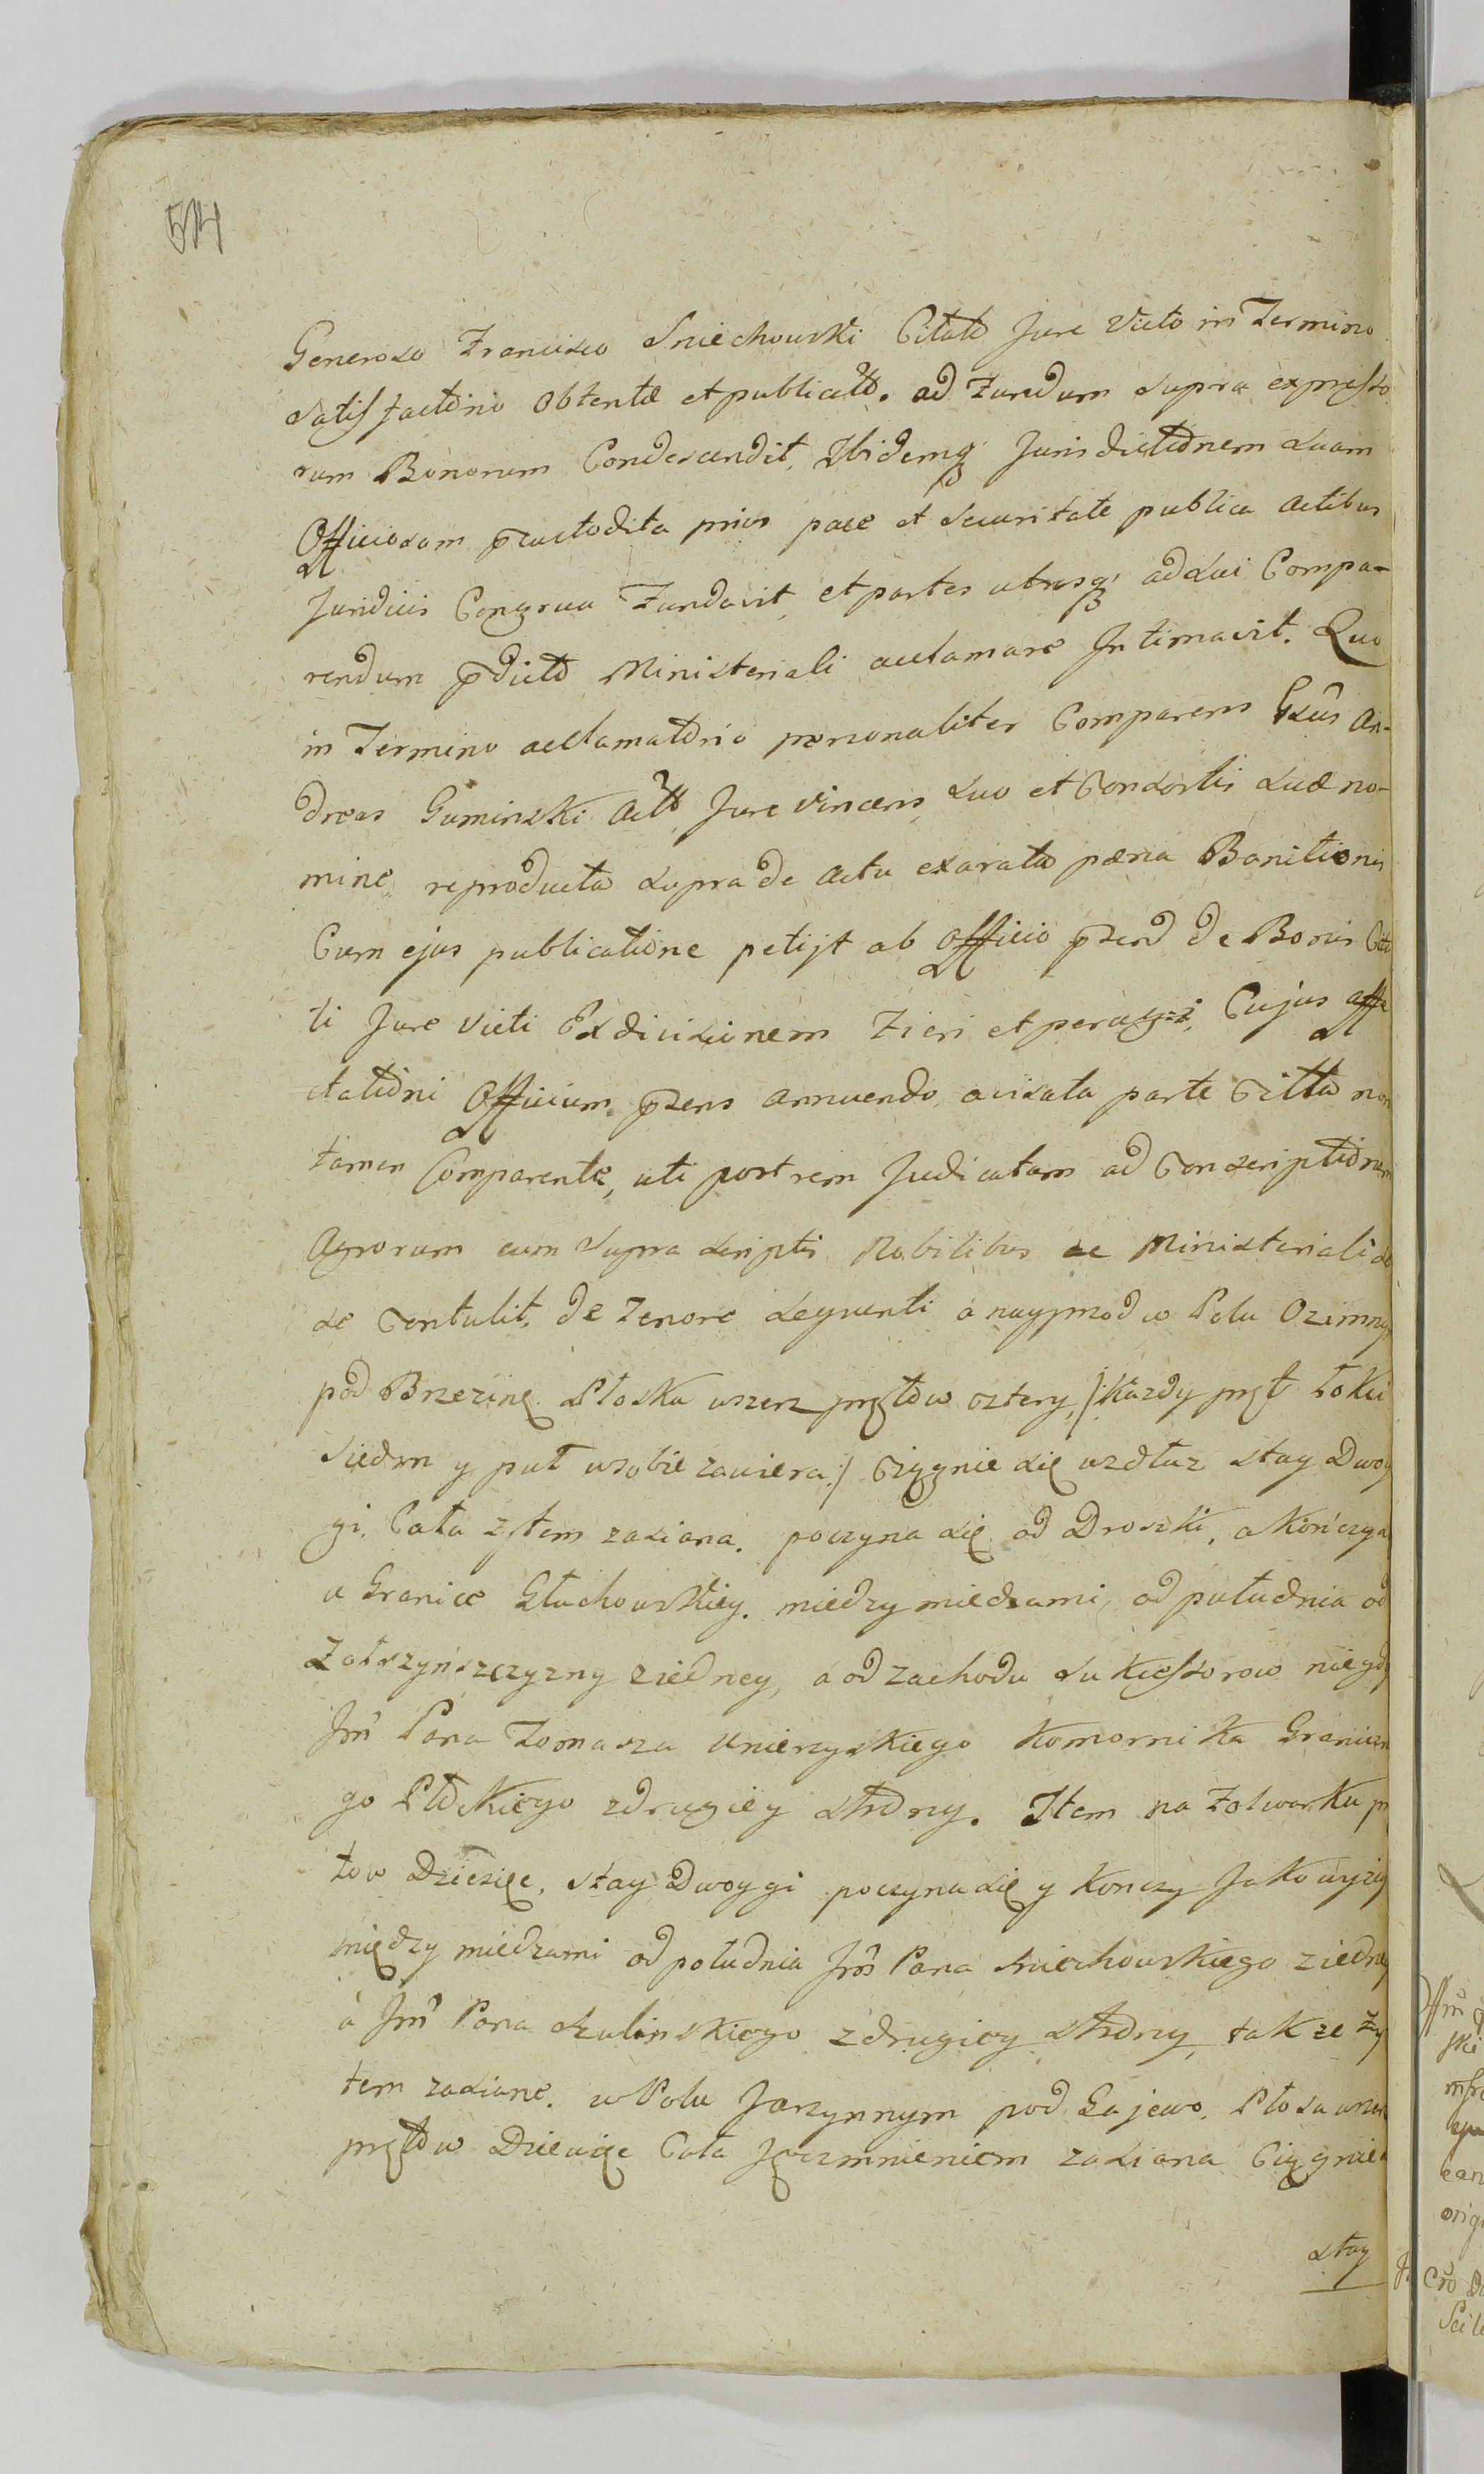 514
Generoso Francisco Sniechowski Citato Jure Victo in Termino
Satisfactōrio obtentæ et publicatæ. ad Fundum supra expresso
rum Bonorum Condescendit, Ibidemq̃ Jurisdictiōnem suam
Officiosam p̃custodita prius pace et securitate publica actibus
Juridicis Congrua Fundavit, et partes utrasq̃ ad sui Compa-
rendum p̃dictō Ministeriali acclamare Intimavit. Quo
in Termino acclamatōrio personaliter Comparens Gsūs An-
dreas Guminski Act Jure vincens, suo et Consortis suæ no-
mine, reproducta supra de actu exarata pæna Banitionis
Cum ejus publicatiōne petijt ab officio p̃send de Bonis Cita
ti Jure victi Exdivisionem Fieri et peragi, Cujus affe
ctatiōni Officium p̃sens annuendo, avisata parte Citta non
tamen Comparente, uti post rem Judicatam ad Conscriptiōnem
Agrorum cum supra scriptis Nobilibus ac Ministeriali
se Contulit, de Tenore sequenti a nayprzod w Polu Ozimny
pod Brzezinę Płoska wszerz prętōw cztery, /: Każdy pręt Łokci
siedm y puł wsobie zawiera :/ Ciągnie się wzdłuz stay Dwoy
gi, Cała zytem zasiana. poczyna się od Drozki, a Kończy
u Granice Głuchowskiey. między miedzami, od południa od
Zołszyńszczyzny ziedney, a od zachodu sukcessorow niegdy
Jm̃ Pana Tomasza Unierzyskiego Komornika Granicz
go Płōckiego zdrugiey strōny. Item na Folwarku
tow Dziesięc, stay Dwoygi poczyna się y Konczy Jako wyzy
między miedzami od południa Jm̃ Pana Sniechowskiego ziedney
à Jm̃ Pana Szulinskiego zdrugiey strōny, takze zy
tem zasiane. w Polu Jarzynnym pod Gajewo, Płosa wszer
prętōw Dziewięc Cała Jęczmnieniem zasiana Ciągnie
stay